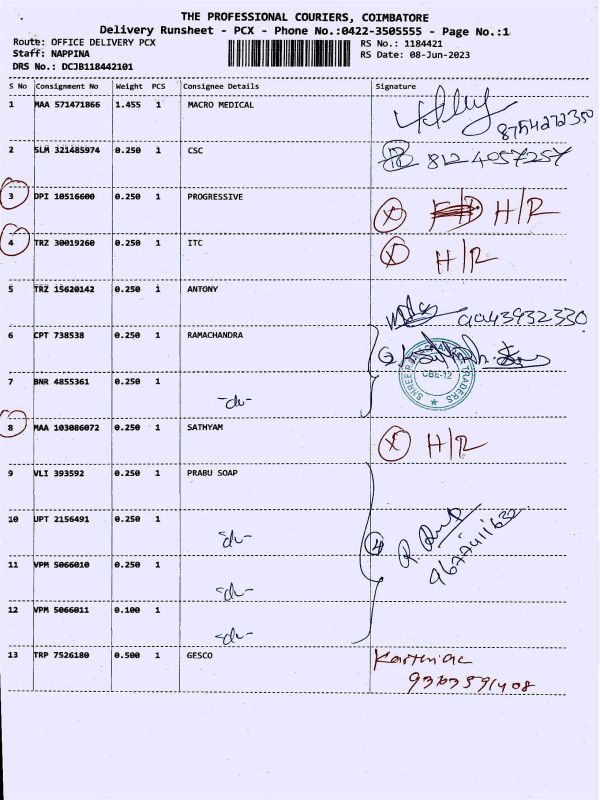 THE PROFESSIONAL COURIERS, COIMBATORE
Delivery Runsheet - PCX - Phone No.:0422-3505555 - Page No.:1
Route: OFFICE DELIVERY PCX RS No.: 1184421
Staff: NAPPINA RS Date: 08-Jun-2023
DRS No.: DCJB118442101
S No Consignment No Weight PCS Consignee Details Signature
1 MAA 571471866 1.455 1 MACRO MEDICAL
8754272350
2 SLM 321485974 0.250 1 CSC 8124057257
3 DPI 10516600 0.250 1 PROGRESSIVE X H/R
4 TRZ 30019260 0.250 1 ITC X H/R
5 TRZ 15620142 0.250 1 ANTONY
9943932330
6 CPT 738538 0.250 1 RAMACHANDRA 2
SHREE TRADERS
CBE-12
7 BNR 4855361 0.250 1 -do-
8 MAA 103086072 0.250 1 SATHYAM X H/R
9 VLI 393592 0.250 1 PRABU SOAP
10 UPT 2156491 0.250 1 -do- 4
11 VPM 5066010 0.250 1 -do-
12 VPM 5066011 0.100 1 -do-
13 TRP 7526180 0.500 1 GESCO
9363591408